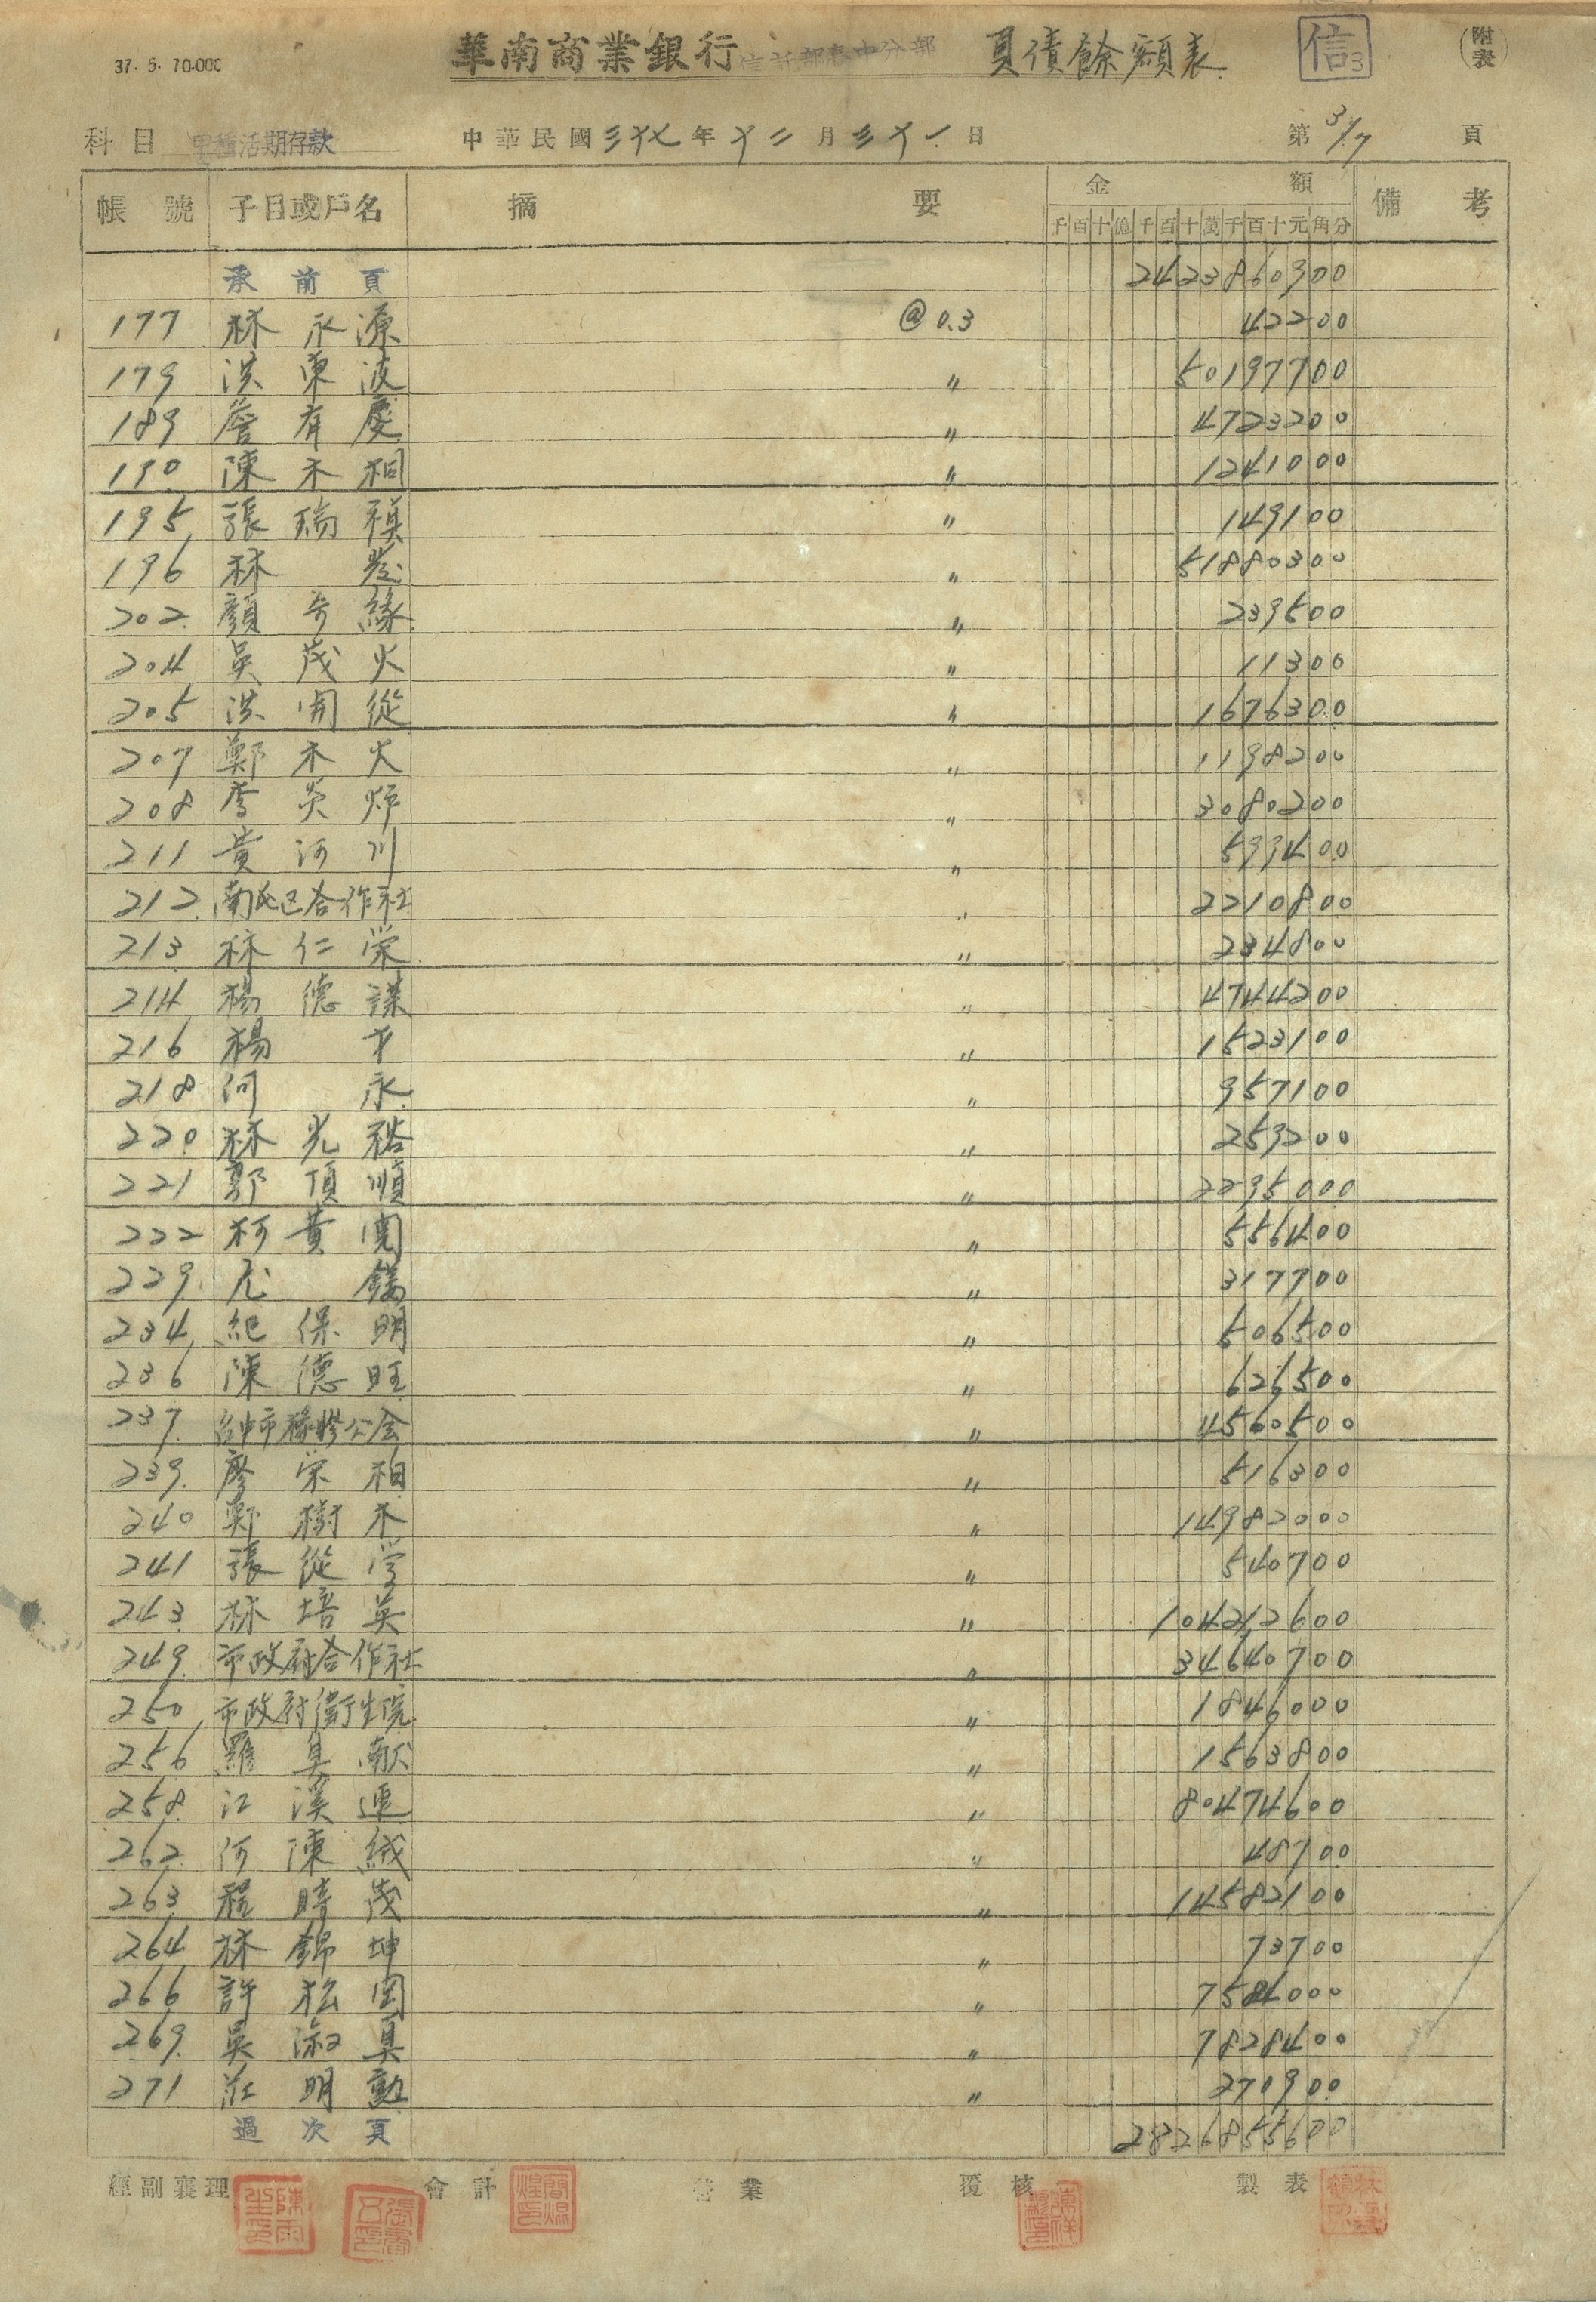 37. 5. 70.000
華南商業銀行 信託部臺中分部 負債餘額表 信3 (附表)
科目 甲種活期存款 中華民國三十七年十二月三十一日 第3/7頁
帳號 子目或戶名 摘要 金額 備考
千百十億千百十萬千百十元角分
承前頁 2423860900
177 林永源 @0.3 42200
179 洪東波 〃 50197700
189 詹有慶 〃 4723200
190 陳木桐 〃 1241000
195 張瑞禎 〃 149100
196 林 〃 51880300
202 顏奇緣 〃 239500
204 吳茂火 〃 11300
205 洪開從 〃 1676300
207 鄭木火 〃 1198200
208 李炎炉 〃 3080200
211 黃河川 〃 599400
212 南屯区合作社 〃 2210800
213 林仁荣 〃 234800
214 楊德謀 〃 4744200
216 楊才 〃 1523100
218 何永 〃 957100
220 林光裕 〃 259200
221 郭頂順 〃 2295000
222 柯黃 〃 556400
229 尤 〃 317700
234 紀保明 〃 506500
236 陳德旺 〃 626500
237 台中市橡膠公会 〃 4560500
239 廖栄柏 〃 516300
240 鄭樹木 〃 14982000
241 張從学 〃 540700
243 林培英 〃 104212600
249 市政府合作社 〃 34640700
250 市政府衛生院 〃 1846000
256 羅臭献 〃 1563800
258 江溪連 〃 80474600
262 何陳絨 〃 48700
263 程時茂 〃 14582100
264 林錦坤 〃 73700
266 許松国 〃 7584000
269 吳淑真 〃 7828400
271 莊明勳 〃 270900
過次頁 2826855600
經副襄理 會計 營業 覆核 製表